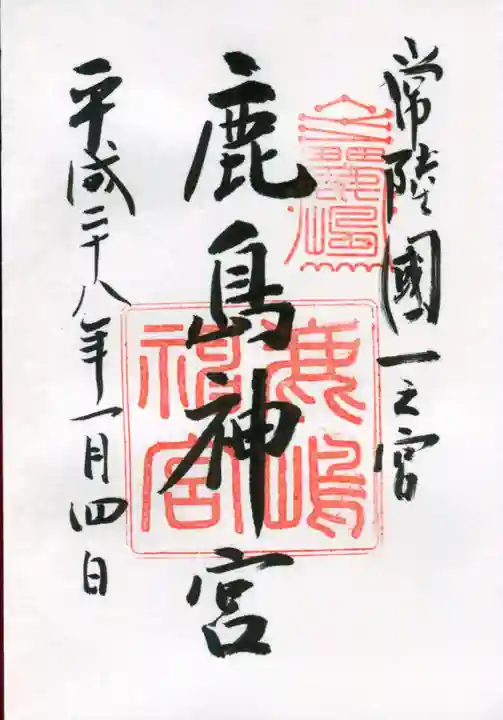 常陸國一之宮
鹿島神宮
平成二十八年一月四日
鹿嶋
神宮